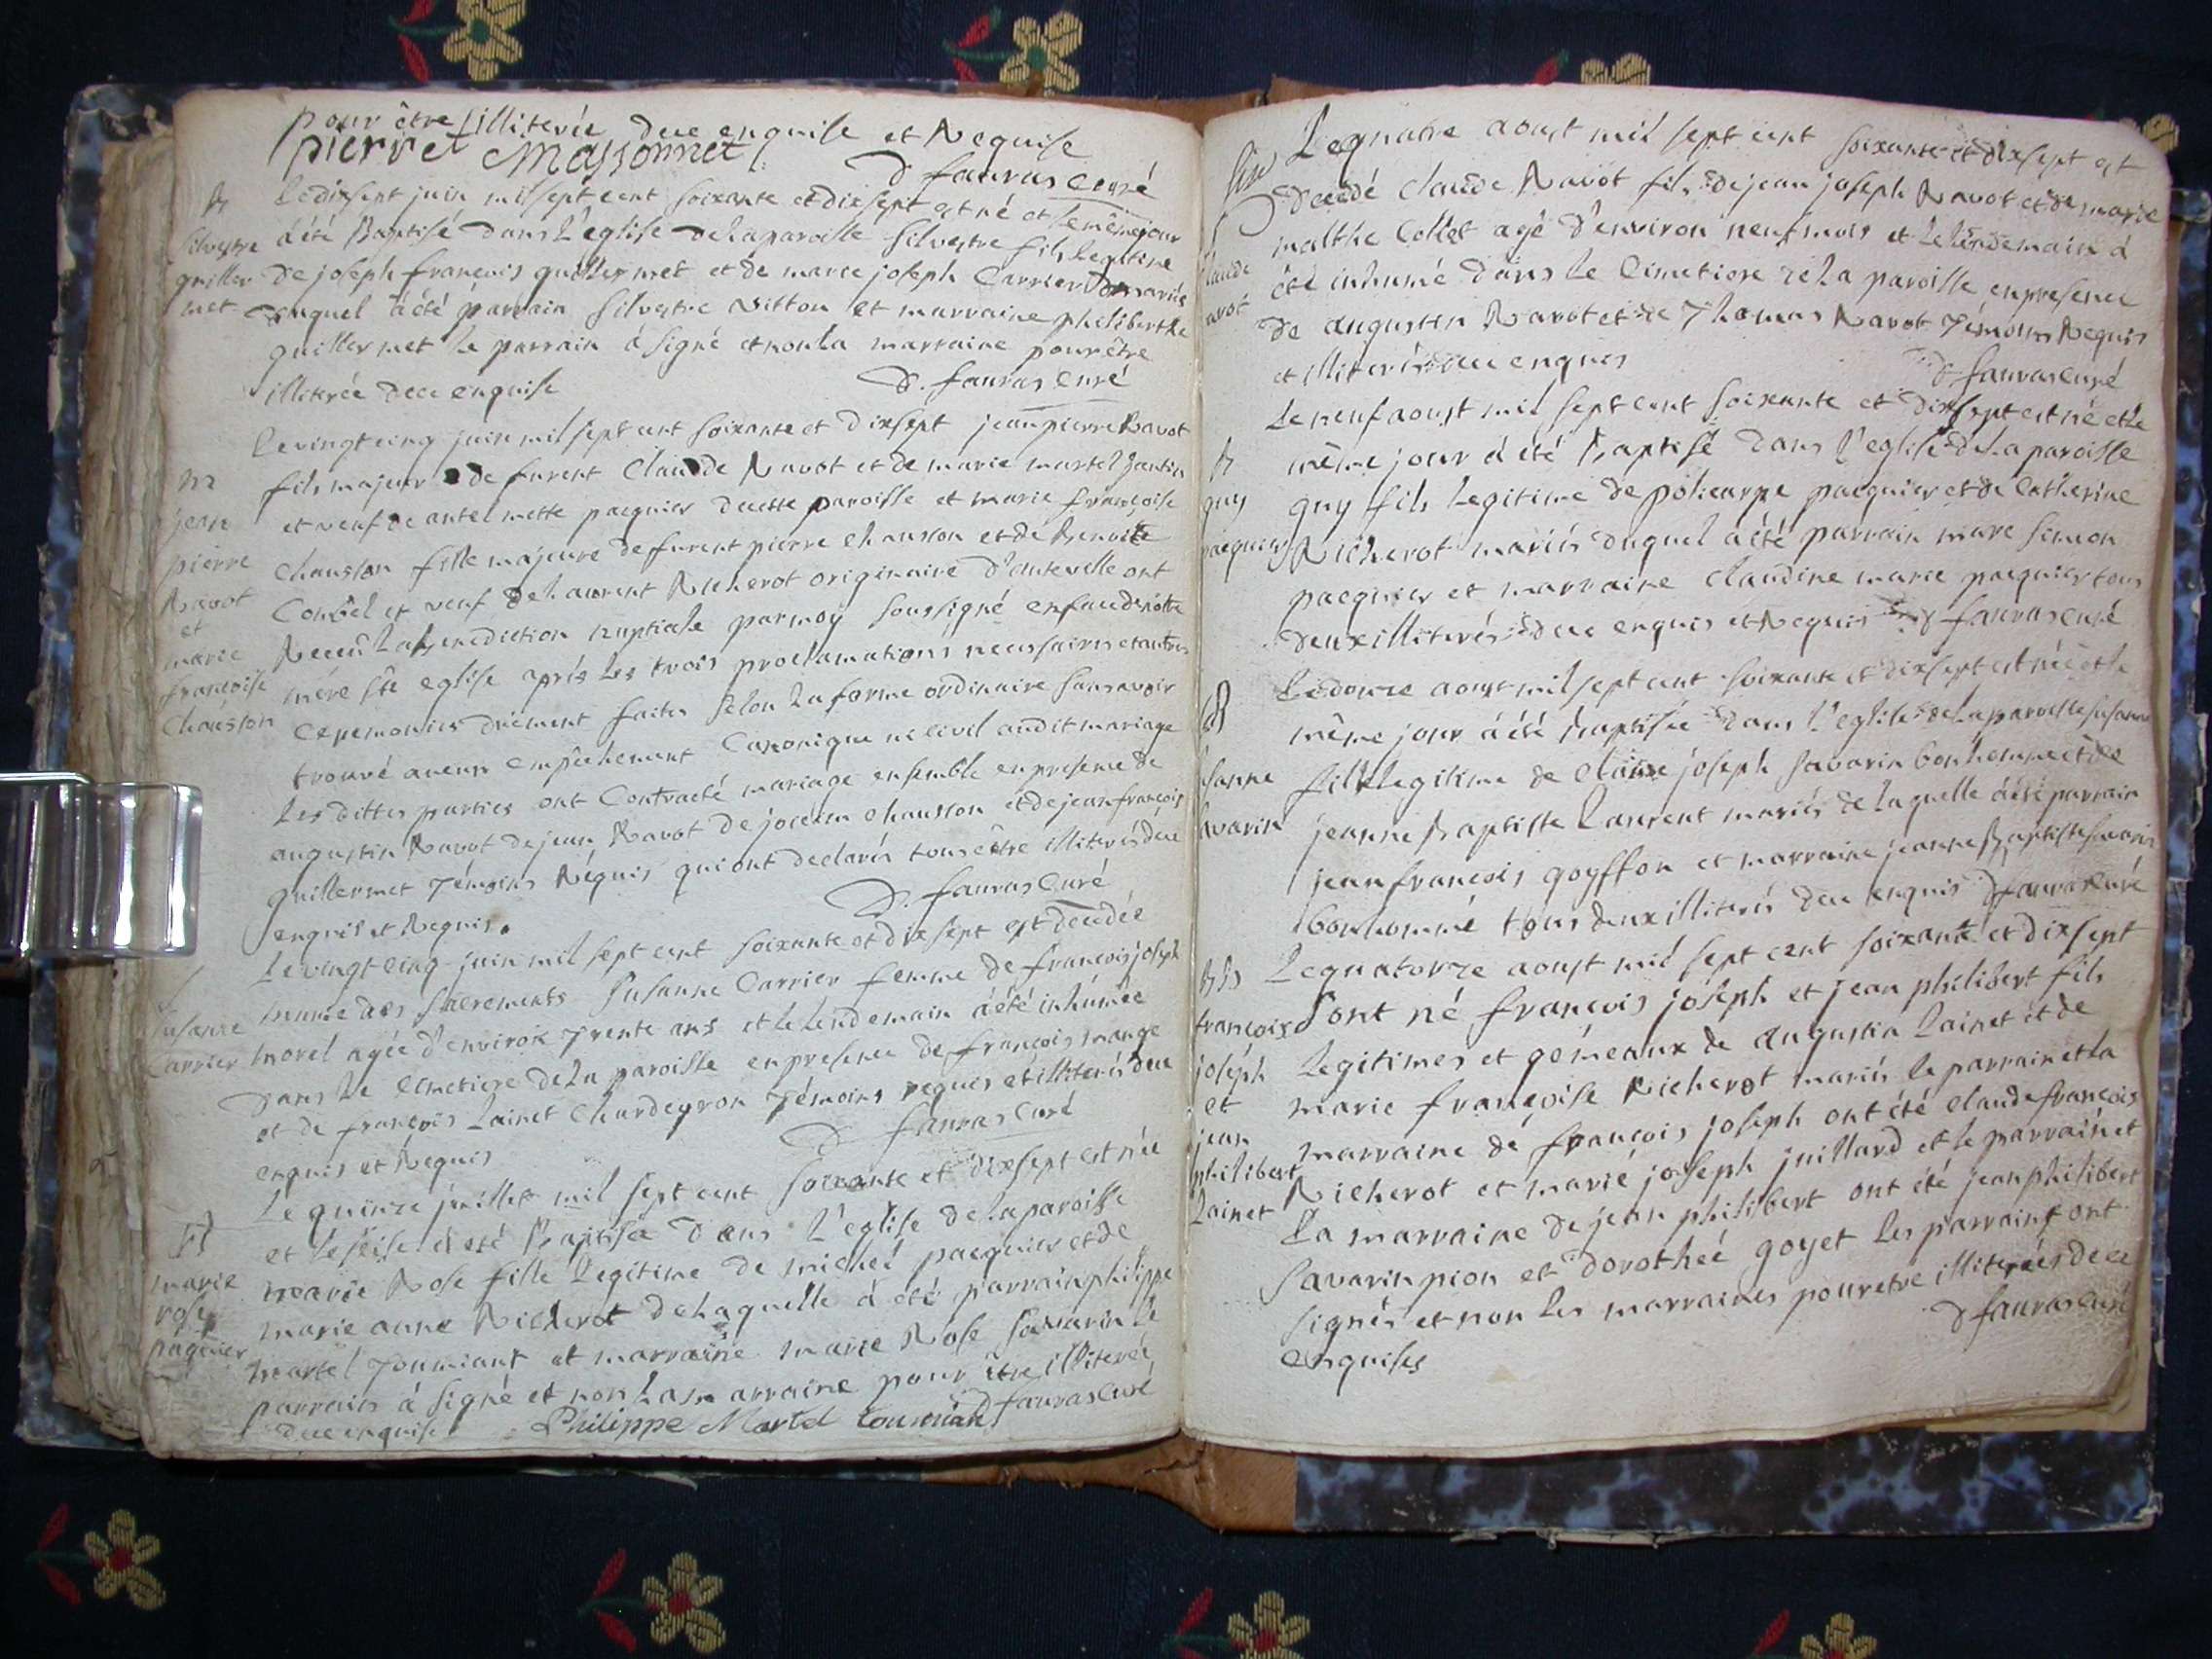 pour être illiterée dece enquise et Requise
pierret Massonnet
D fauras curé
B
silvestre
guiller
met
Le dixsept juin mil sept cent soixante et dixsept est né et le même jour
à été Baptisé dans l'église de la paroisse silvestre fils legitime
de joseph francois guillermet et de marie joseph Carrier mariés
duquel à été parrain silvestre vitton et marraine philiberthe
guillermet le parrain à signé et non la marraine pour être
illiterée dece enquise
D. fauras curé
M
jean
pierre
Ravot
et
marie
françoise
Chauston
Le vingt cinq juin mil sept cent soixante et dixsept jean pierre Ravot
fils majeur de furent Claude Ravot et de marie martel
et veuf de antelmette pacquier de cette paroisse et marie françoise
chauston fille majeure de furent pierre chauston et de Benoite
et veuf de Laurent Richerot originaire d'
Receu la benediction nuptiale par moy soussigné en face de nôtre
mére ste eglise aprés les trois proclamations necessaires et autres
ceremonies duement faites selon la forme ordinaire sans avoir
trouvé aucun empêchement Canonique ne civil audit mariage
les dittes parties ont Contracté mariage ensemble en presence de
augustin Ravot de jean Ravot de chauston et de jean francois
guillermet Témoins Réquis qui ont declarés tous être illiterés dece
enquis et Requis.
D. fauras Curé
S
susanne
Carrier
Le vingt cinq juin mil sept cent soixante et dix sept est decedée
munie des sacrements susanne Carrier femme de francois joseph
morel agée d'environ trente ans et le lendemain à été inhumée
dans le Cimetiere de la paroisse en presence de francois mange
et de françois Lainet Chardeyron Témoins requis et illiterés dece
enquis et Réquis
D fauras Curé
B
marie
rose
paquier
Le quinze juillet mil sept cent soixante et dixsept est née
et le seise à eté Baptisée dans L'eglise de la paroisse
marie Rose fille Legitime de michel pacquier et de
marie anne Richerot de Laquelle à été parrain philippe
martel Toumiant et marraine marie Rose savarin le
parrain à signé et non la marraine pour être illiterée
dece enquise
D fauras Curé
Philippe Martel toumian
S
laude
avot
Le quatre aoust mil sept cent soixante et dixsept est
decedé claude Ravot fils de jean joseph Ravot et de marie
malthe Collet agé d'environ neuf mois et le lendemain à
été inhumé dans le Cimetiere de la paroisse en presence
de augustin Ravot et de Thomas Ravot Témoins Requis
et illiterés dece enquis
D fauras curé
B
guy
pacquier
Le neuf aoust mil sept cent soixante et dixsept est né et le
même jour à été Baptisé dans l'eglise de la paroisse
guy fils legitime de policarpe pacquier et de Catherine
Richerot mariés duquel à été parrain marc simeon
pacquier et marraine claudine marie pacquier tous
deux illiterés dece enquis et Requis D fauras curé
B
usanne
avarin
Le douze aoust mil sept cent soixante et dixsept est née et le
même jour à été Baptisée dans l'eglise de la paroisse susanne
fille legitime de Claude joseph savarin bonhomme et de
jeanne Baptiste Laurent mariés de laquelle à été parrain
jean francois goyffon et marraine jeanne Baptiste savarin
bonhomme tous deux illiterés dece enquis D fauras curé
BB
francois
joséph
et
jean
philibert
Lainet
Le quatorze aoust mil sept cent soixante et dixsept
sont né francois joseph et jean philibert fils
legitimes et gémeaux de augustin Lainet et de
marie françoise Richerot mariés le parrain et la
marraine de francois joseph ont été claude francois
Richerot et marie joseph juillard et le parrain et
La marraine de jean philibert ont été jean philibert
savarin pion et dorothée goyet les parrains ont
signés et non les marraines pour etre illiterées dece
enquises
D fauras curé